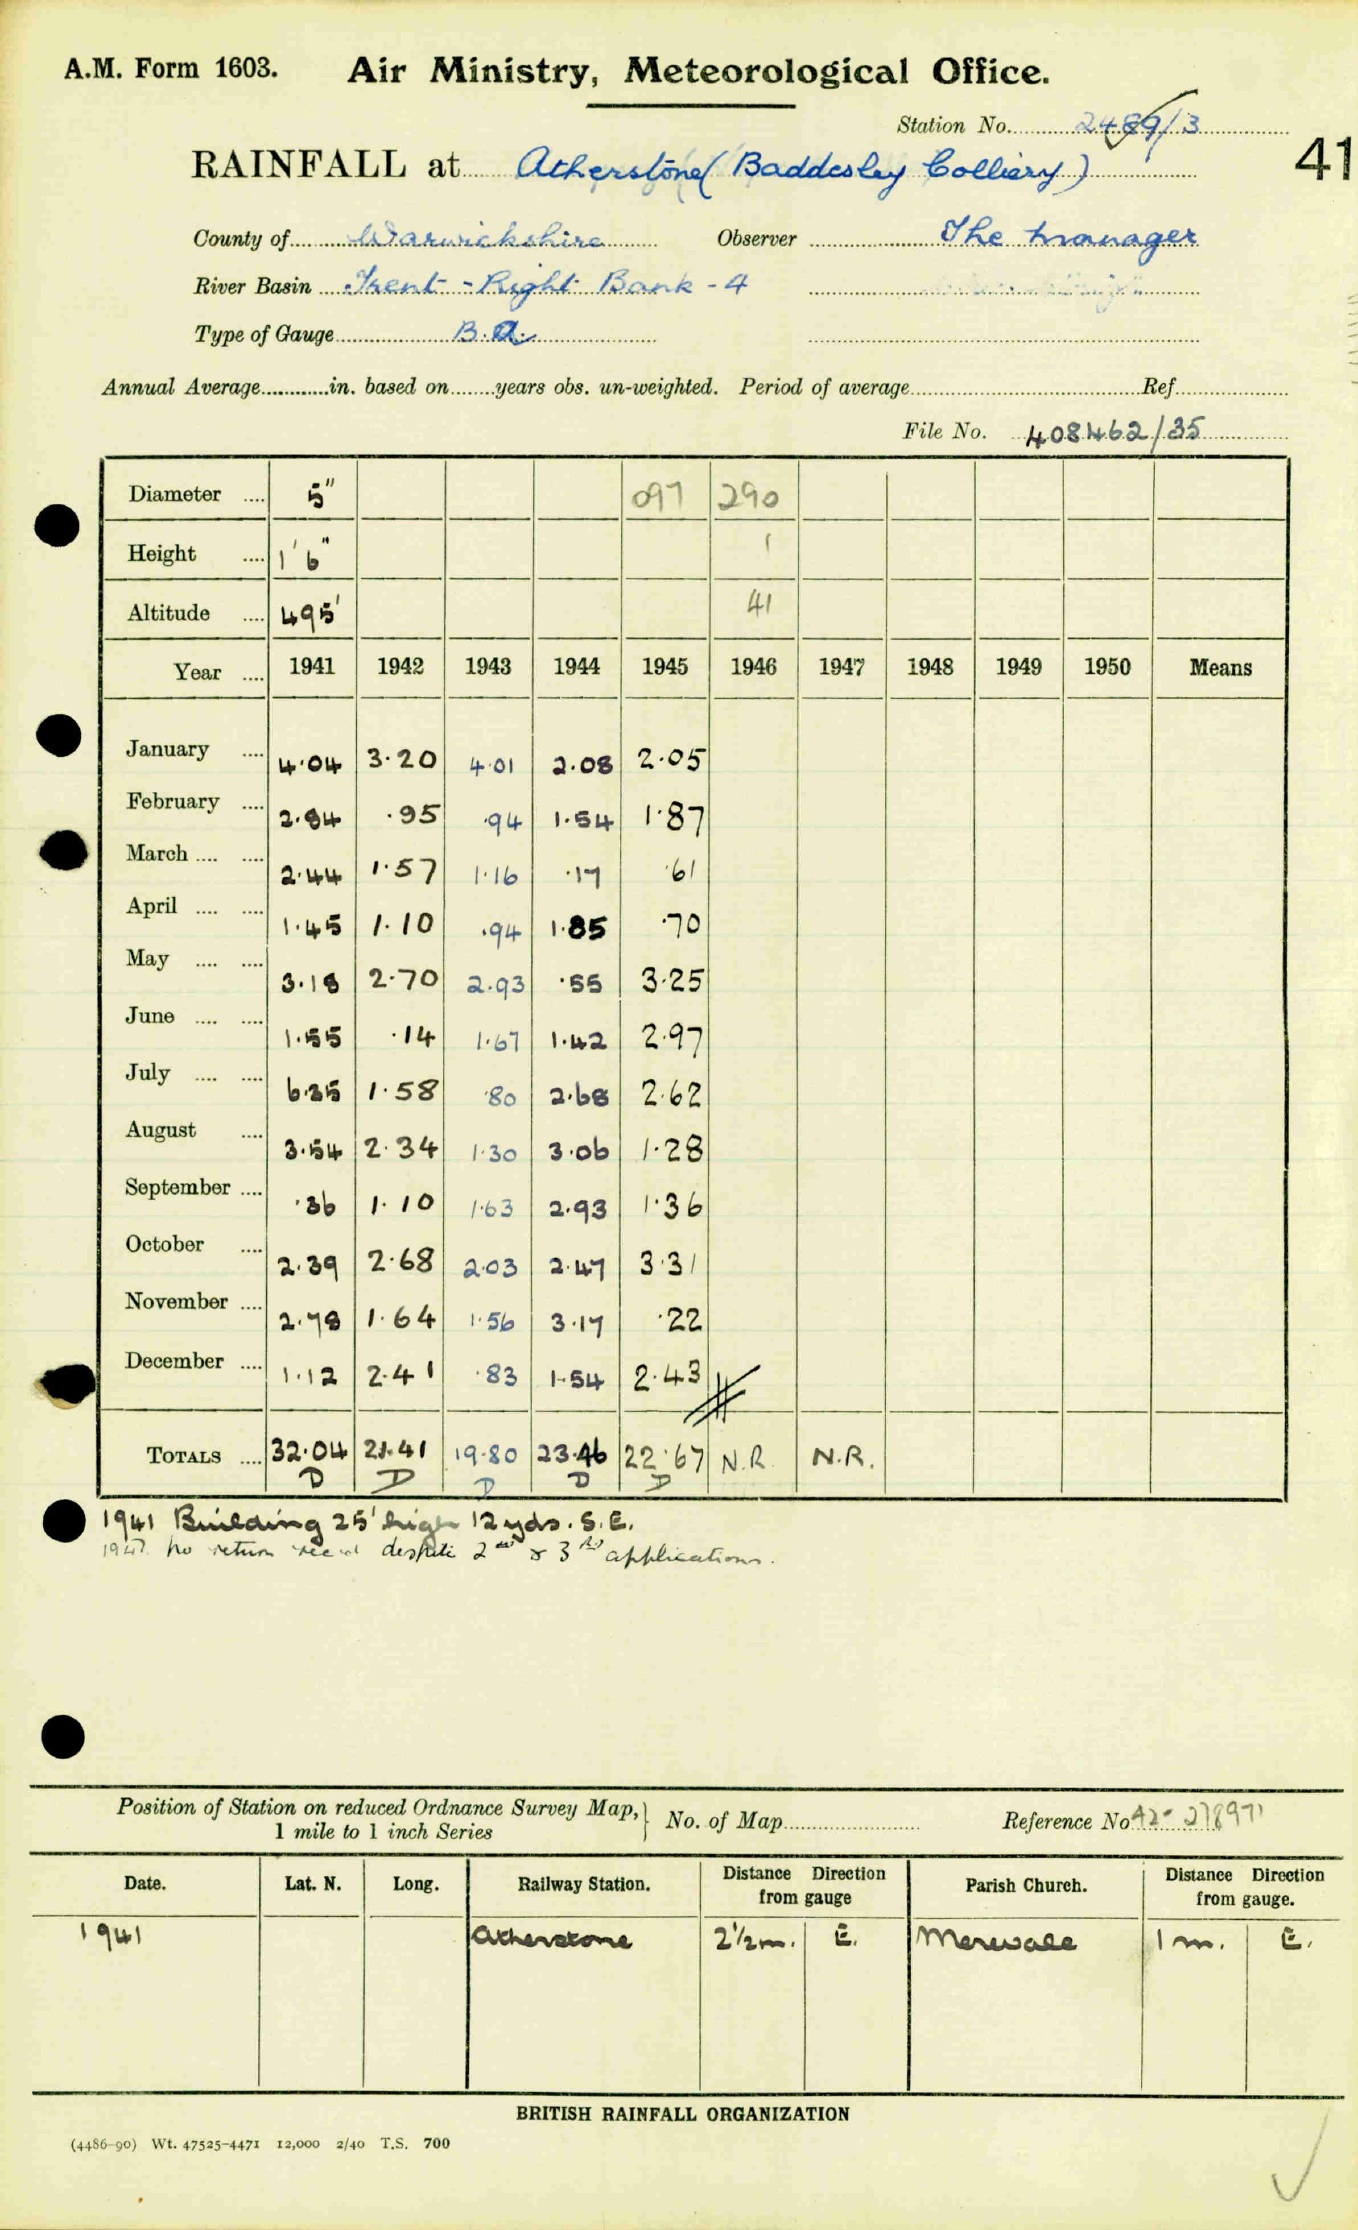 A.M. Form 1603. Air Ministry, Meteorological Office.
Station No. 2489/3
RAINFALL at Atherstone (Baddesley Colliery) 41
County of Warwickshire Observer The Manager
River Basin Trent - Right Bank - 4
Type of Gauge B.A.
Annual Average in. based on years obs. un-weighted. Period of average Ref
File No. 408462/35
Diameter .... 5" 097 290
Height .... 1'6" 1
Altitude .... 495' 41
Year .... 1941 1942 1943 1944 1945 1946 1947 1948 1949 1950 Means
January .... 4.04 3.20 4.01 2.08 2.05
February .... 2.84 .95 .94 1.54 1.87
March .... .... 2.44 1.57 1.16 .17 .61
April .... .... 1.45 1.10 .94 1.85 .70
May .... .... 3.18 2.70 2.93 .55 3.25
June .... .... 1.55 .14 1.67 1.42 2.97
July .... .... 6.35 1.58 .80 2.68 2.62
August .... 3.54 2.34 1.30 3.06 1.28
September .... .36 1.10 1.63 2.93 1.36
October .... 2.39 2.68 2.03 2.47 3.31
November .... 2.78 1.64 1.56 3.17 .22
December .... 1.12 2.41 .83 1.54 2.43
TOTALS .... 32.04 21.41 19.80 23.46 22.67 N.R. N.R.
D D D D D
1941 Building 25' high 12 yds. S.E.
1947 No return rec'd despite 2nd & 3rd applications.
Position of Station on reduced Ordnance Survey Map, 1 mile to 1 inch Series } No. of Map Reference No 42-278971
Date. Lat. N. Long. Railway Station. Distance Direction from gauge Parish Church. Distance Direction from gauge.
1941 Atherstone 2½m. E. Merevale 1m. E.
BRITISH RAINFALL ORGANIZATION
(4486-90) Wt. 47525-4471 12,000 2/40 T.S. 700